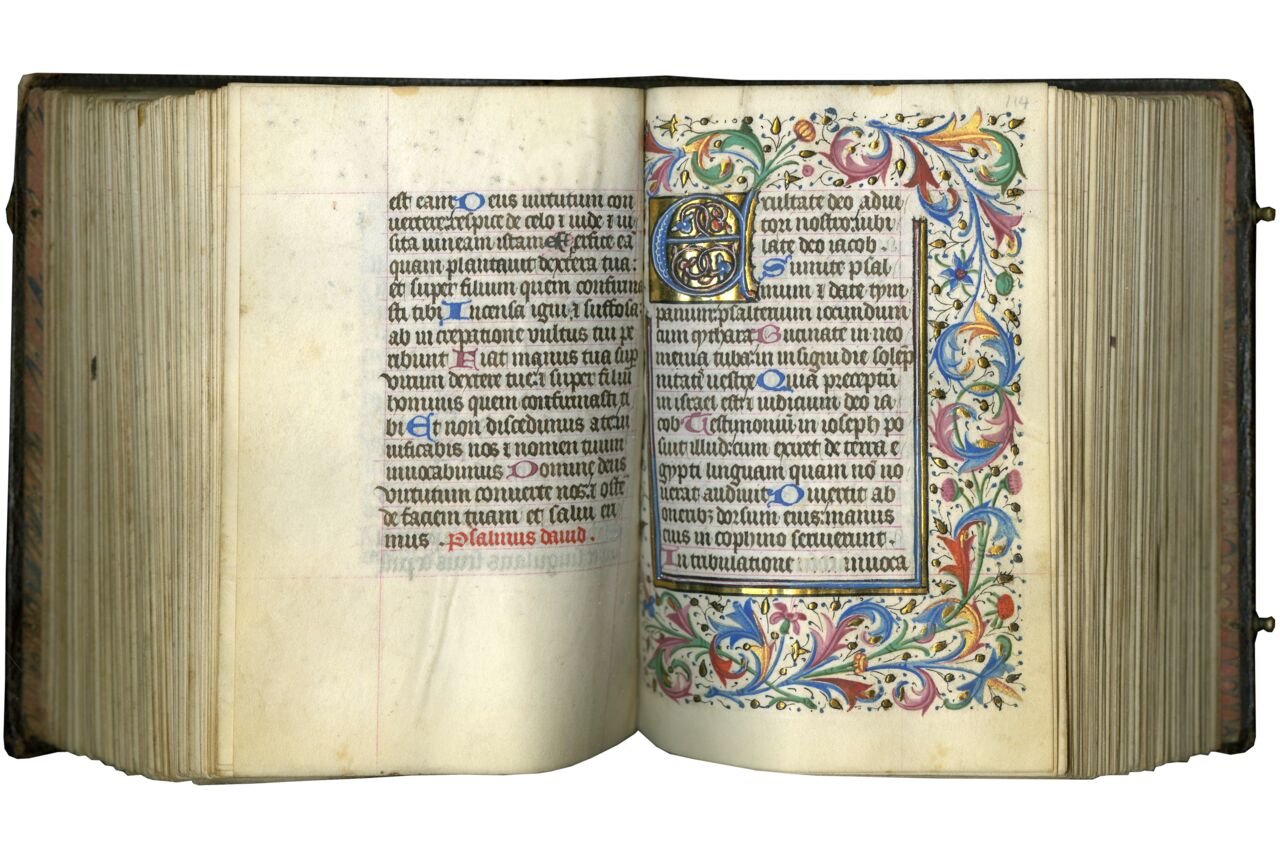 est eam Deus uirtutum con
uertere: respice de celo ⁊ uide ⁊ ui
sita uineam istam Et perfice eā
quam plantauit dextera tua:
et super filium quem confirma
sti tibi Incensa igni ⁊ suffossa:
ab increpatione vultus tui pe
ribunt Fiat manus tua sup
virum dextere tue: ⁊ super filiū
hominis quem confirmasti ti
bi Et non discedimus a te: ui
uificabis nos ⁊ nomen tuum
inuocabimus Domine deus
virtutum conuerte nos: ⁊ oste
de faciem tuam et salui eri
mus . Psalmus dauid .
114
Exultate deo adiu
tori nostro: iubi
late deo iacob .
Sumite psal
mum ⁊ date tym
panum: psalterium iocundum
cum cythara Bucinate in neo
menia tuba: in insigni die solēp
nitatis uestre Quia preceptū
in israel est: ⁊ iudicium deo ia
cob Testimonium in ioseph po
suit illud: cum exiret de terra e
gypti linguam quam nō no
uerat audiuit Diuertit ab
oneribz dorsum eius: manus
eius in cophino seruierunt .
In tribulatione inuoca